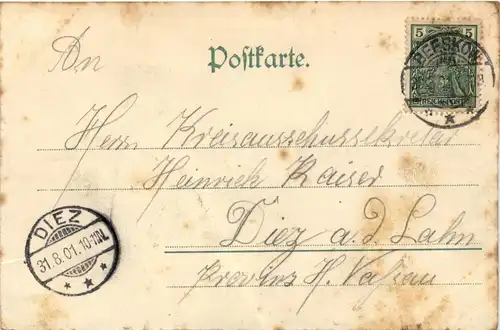 An
Postkarte.
5 5
BEESKOW
Herrn Kreisausschusssekretär
Heinrich Kaiser
Diez a. d. Lahn
Provinz H. Nassau
DIEZ
31.8.01.10-11N.